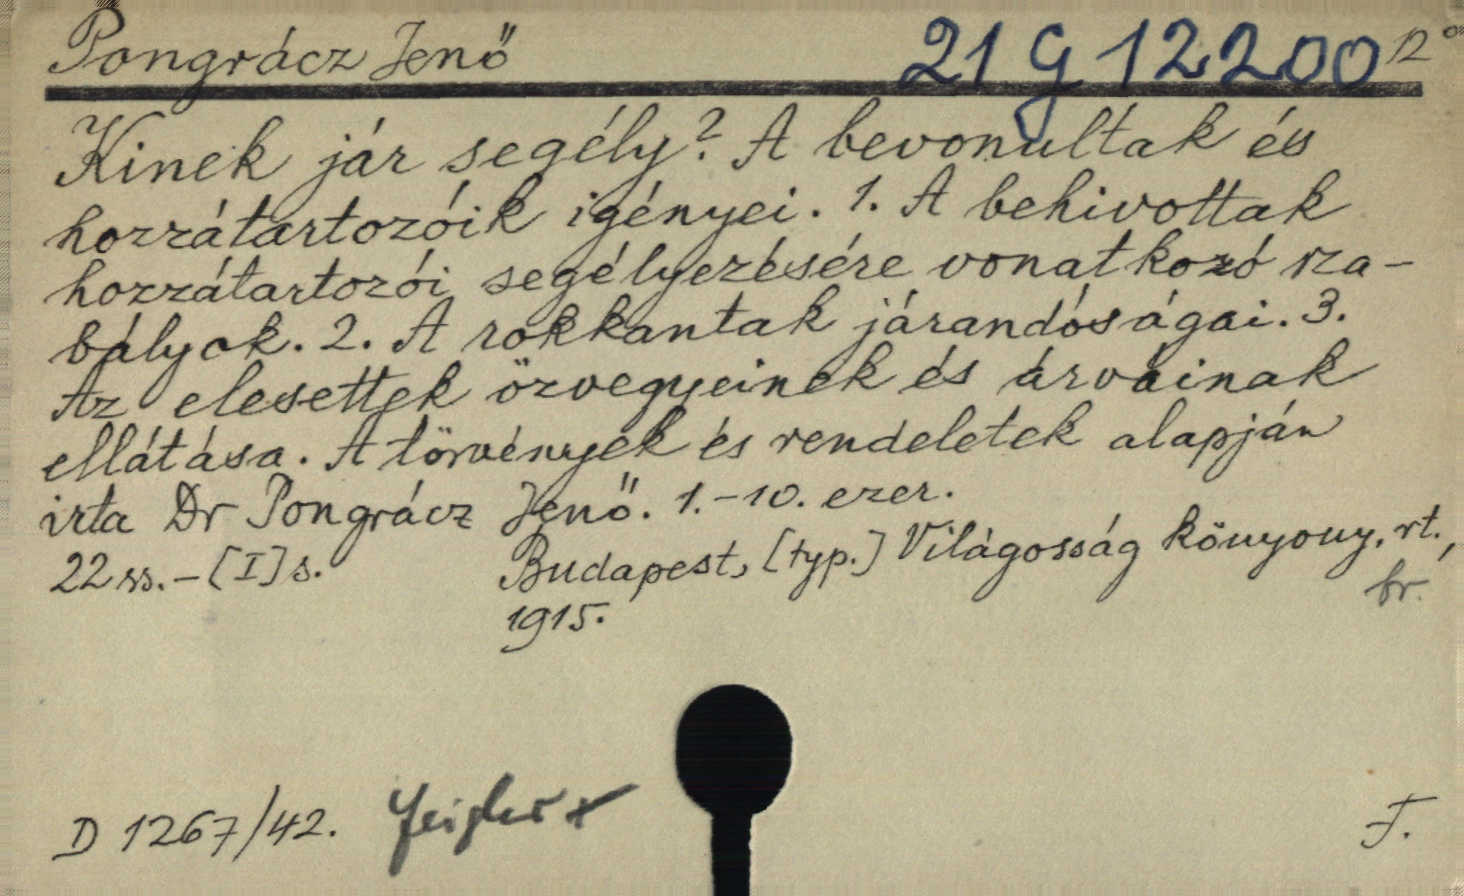 Pongrácz Jenő 21 G 12200 12°
Kinek jár segély? A bevonultak és
hozzátartozóik igényei. 1. A behivottak
hozzátartozói segélyezésére vonatkozó sza-
bályok. 2. A rokkantak járandóságai. 3.
Az elesettek özvegyeinek és árváinak
ellátása. A törvények és rendeletek alapján
irta Dr Pongrácz Jenő. 1.-10. ezer.
22 ss. - [I] s. Budapest, [typ.] Világosság könyvny. rt.,
1915. br.
D 1267/42.
F.